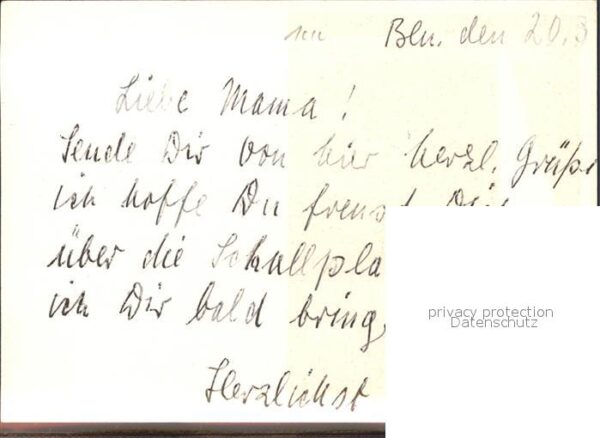 Bln. den 20.3
Liebe Mama!
Sende Dir von hier herzl. Grüße
ich hoffe Du freust Dich
über die Schallpla
ich Dir bald bring
Herzlichst
privacy protection
Datenschutz